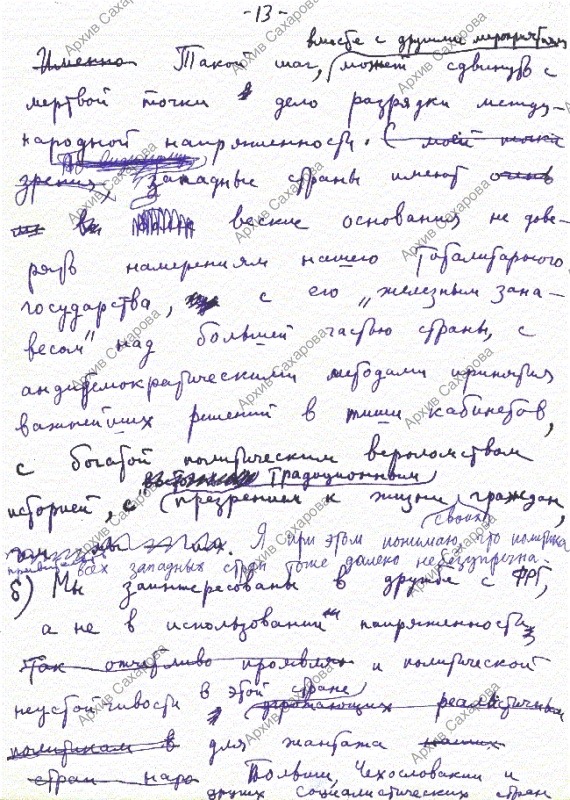 -13-
вместе с другими мероприятиями
Именно Такой шаг, может сдвинуть с
мертвой точки дело разрядки между-
народной напряженности. С моей точки
зрения Западные страны имеют очень
веские основания не дове-
рять намерениям нашего тоталитарного
государства, с его „железным зана-
весом" над большей частью страны, с
антидемократическими методами принятия
важнейших решений в тиши кабинетов,
с богатой политическим вероломством
традиционным
историей, с презрением к жизни граждан,
своих
Я при этом понимаю, что политика
всех западных стран тоже далеко небезупречна.
б) Мы заинтересованы в дружбе с ФРГ,
а не в использовании напряженности,
Так отчетливо и политической
неустойчивости в этой стране
реалистичным
политикам в для шантажа наших
стран наро Польши, Чехословакии и
других социалистических стран
Архив Сахарова